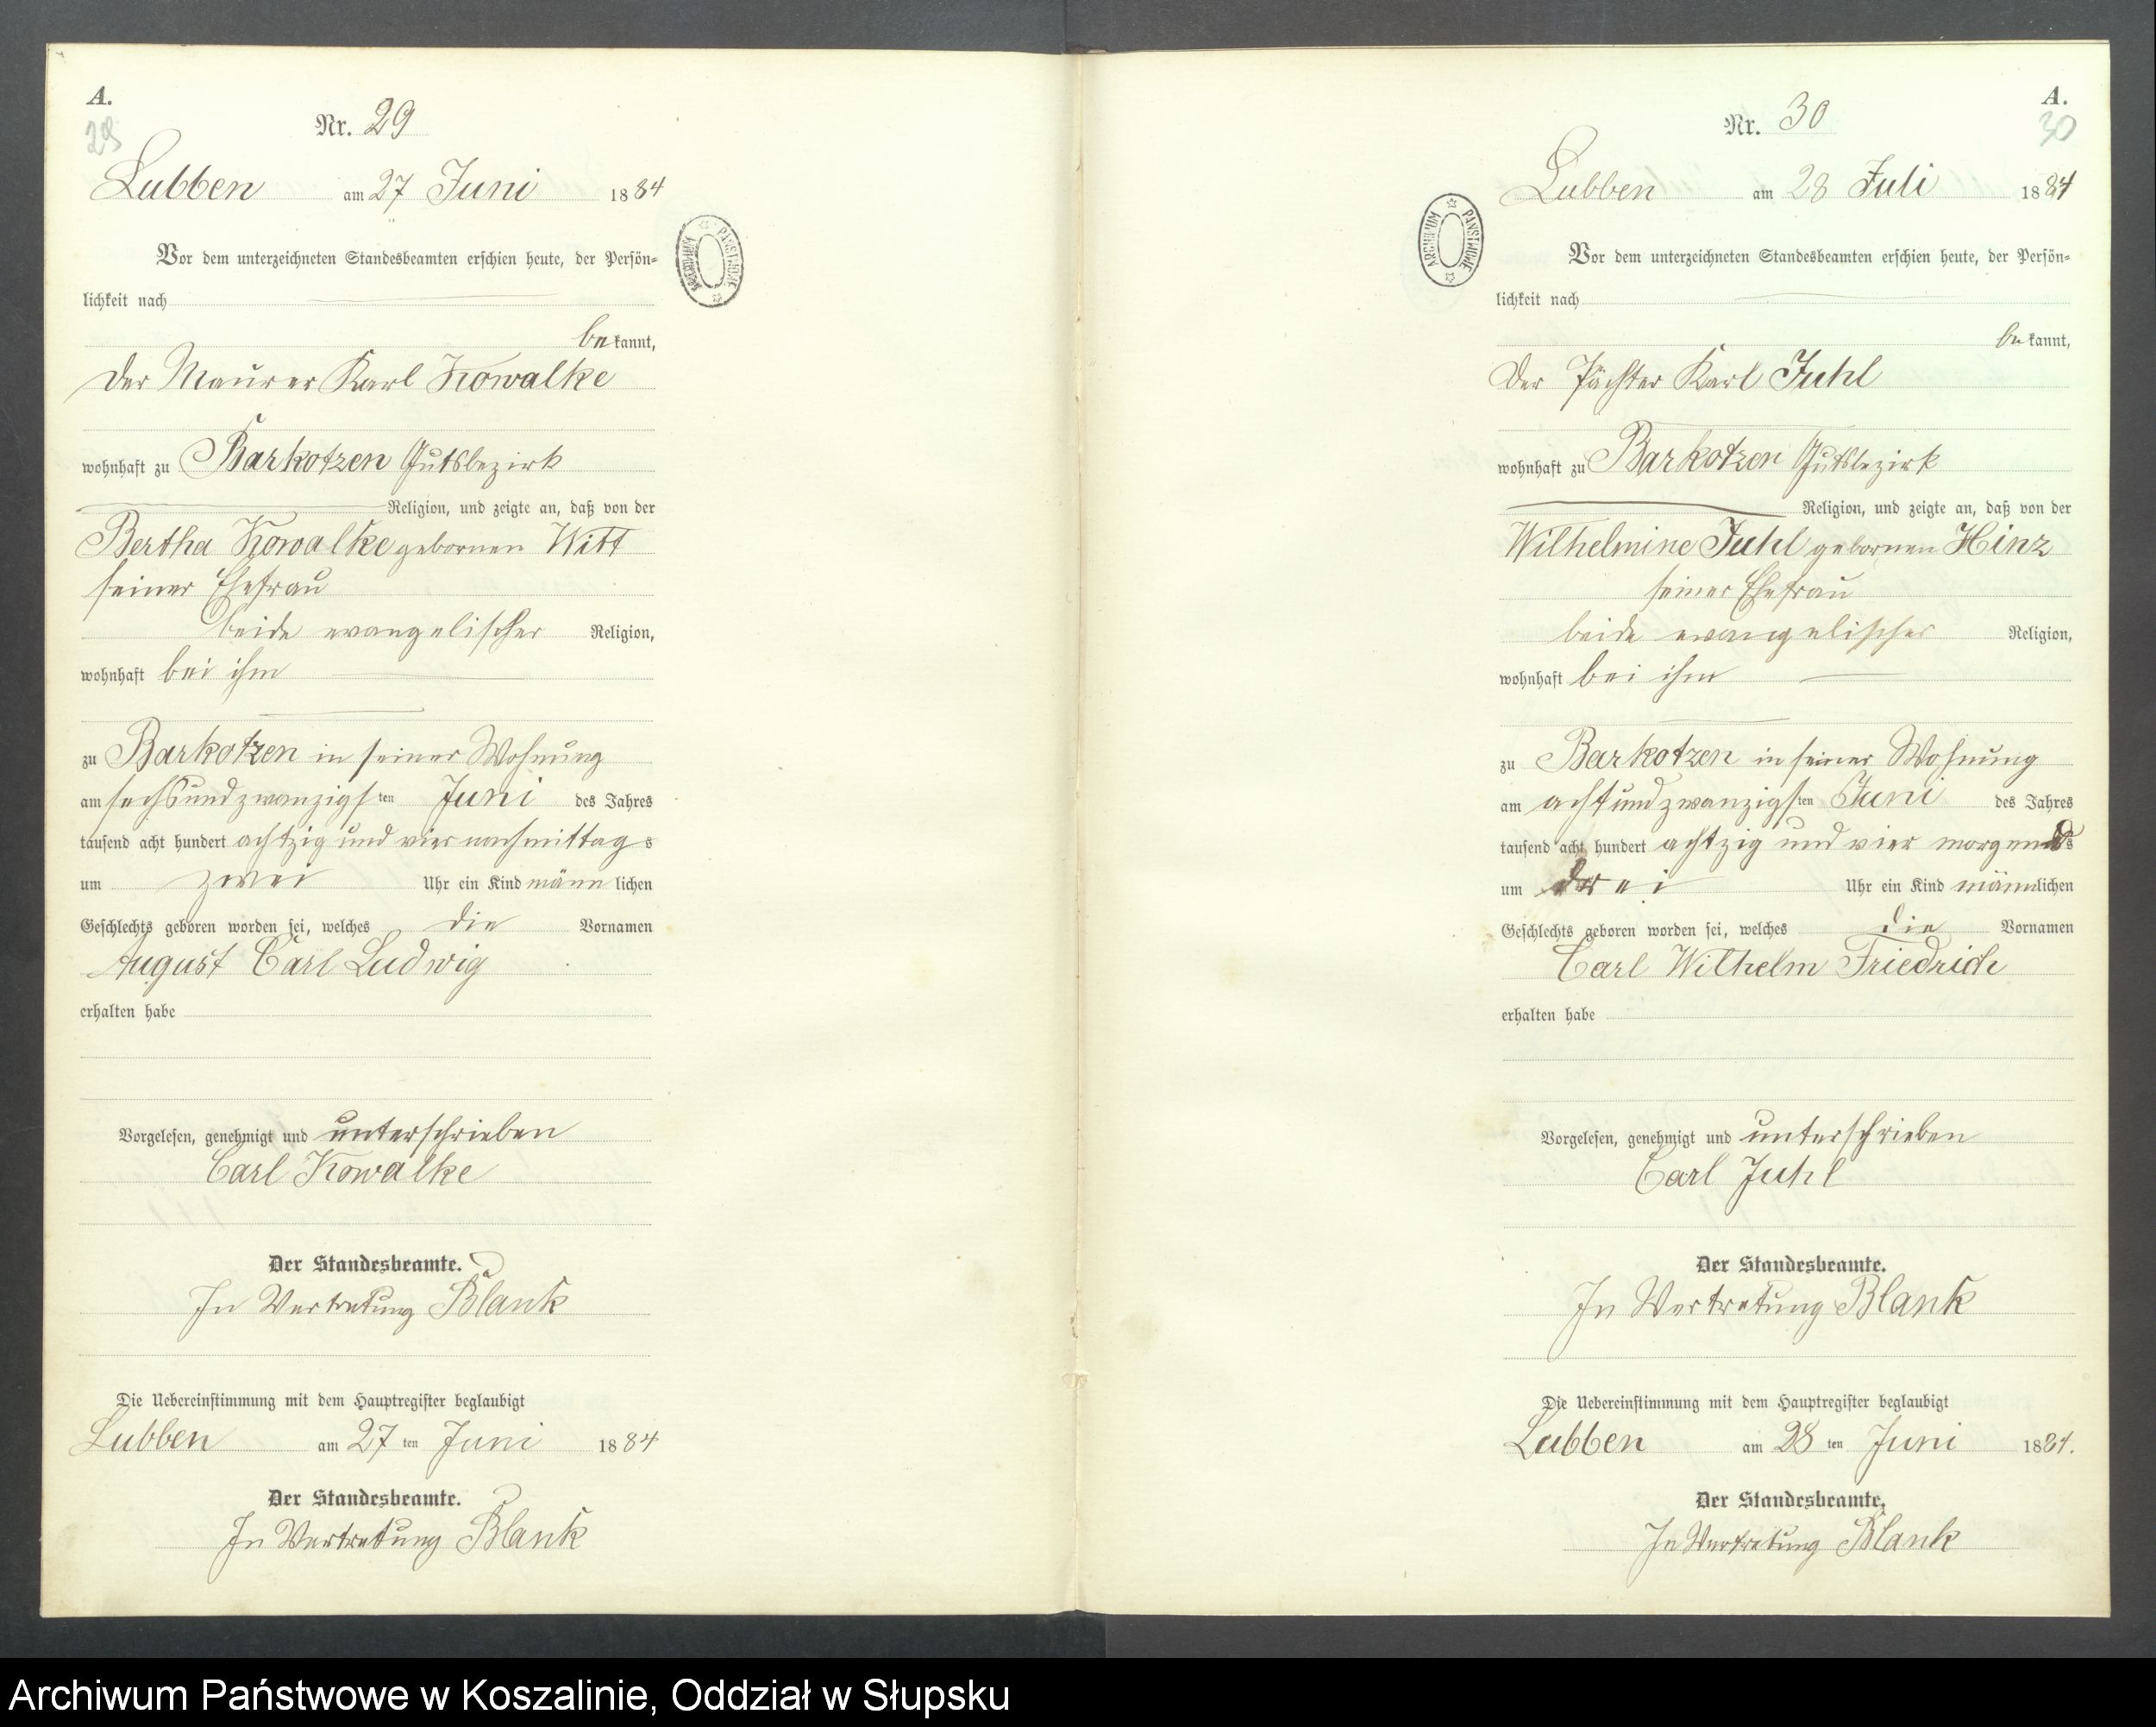 A.
29
Nr. 29
Lubben am 27 Juni 1884
Vor dem unterzeichneten Standesbeamten erschien heute, der Persön-
lichkeit nach
bekannt,
der Maurer Karl Kowalke
wohnhaft zu Barkotzen Gutsbezirk
Religion, und zeigte an, daß von der
Bertha Kowalke gebornen Witt
seiner Ehefrau
beide evangelischer Religion,
wohnhaft bei ihm
zu Barkotzen in seiner Wohnung
am sechsundzwanzigsten Juni des Jahres
tausend acht hundert achtzig und vier nachmittags
um zwei Uhr ein Kind männlichen
Geschlechts geboren worden sei, welches die Vornamen
August Carl Ludwig
erhalten habe
Vorgelesen, genehmigt und unterschrieben
Carl Kowalke
Der Standesbeamte.
In Vertretung Blank
Die Uebereinstimmung mit dem Hauptregister beglaubigt
Lubben am 27 ten Juni 1884
Der Standesbeamte.
In Vertretung Blank
ARCHIWUM PAŃSTWOWE
A.
30
Nr. 30
Lubben am 28 Juli 1884
Vor dem unterzeichneten Standesbeamten erschien heute, der Persön-
lichkeit nach
bekannt,
der Pächter Karl Juhl
wohnhaft zu Barkotzen Gutsbezirk
Religion, und zeigte an, daß von der
Wilhelmine Juhl gebornen Hinz
seiner Ehefrau
beide evangelischer Religion,
wohnhaft bei ihm
zu Barkotzen in seiner Wohnung
am achtundzwanzigsten Juni des Jahres
tausend acht hundert achtzig und vier morgends
um drei Uhr ein Kind männlichen
Geschlechts geboren worden sei, welches die Vornamen
Carl Wilhelm Friedrich
erhalten habe
Vorgelesen, genehmigt und unterschrieben
Carl Juhl
Der Standesbeamte.
In Vertretung Blank
Die Uebereinstimmung mit dem Hauptregister beglaubigt
Lubben am 28 ten Juni 1884.
Der Standesbeamte.
In Vertretung Blank
ARCHIWUM PAŃSTWOWE
Archiwum Państwowe w Koszalinie, Oddział w Słupsku